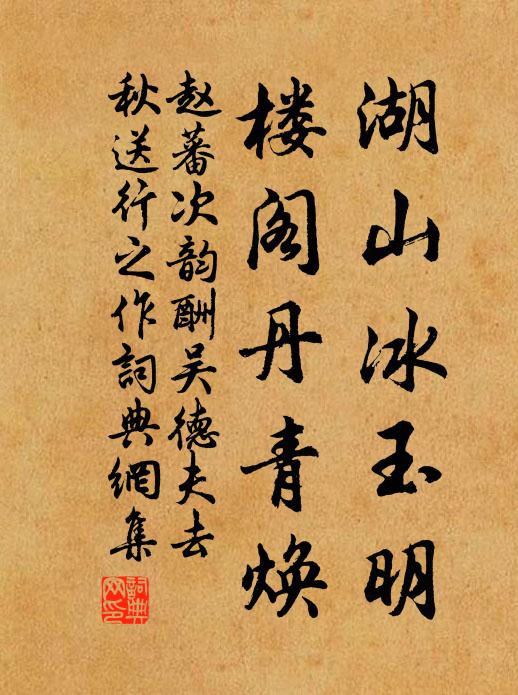 湖山冰玉明
楼阁丹青焕
赵蕃次韵酬吴德夫去
秋送行之作詞典網集
詞典網印